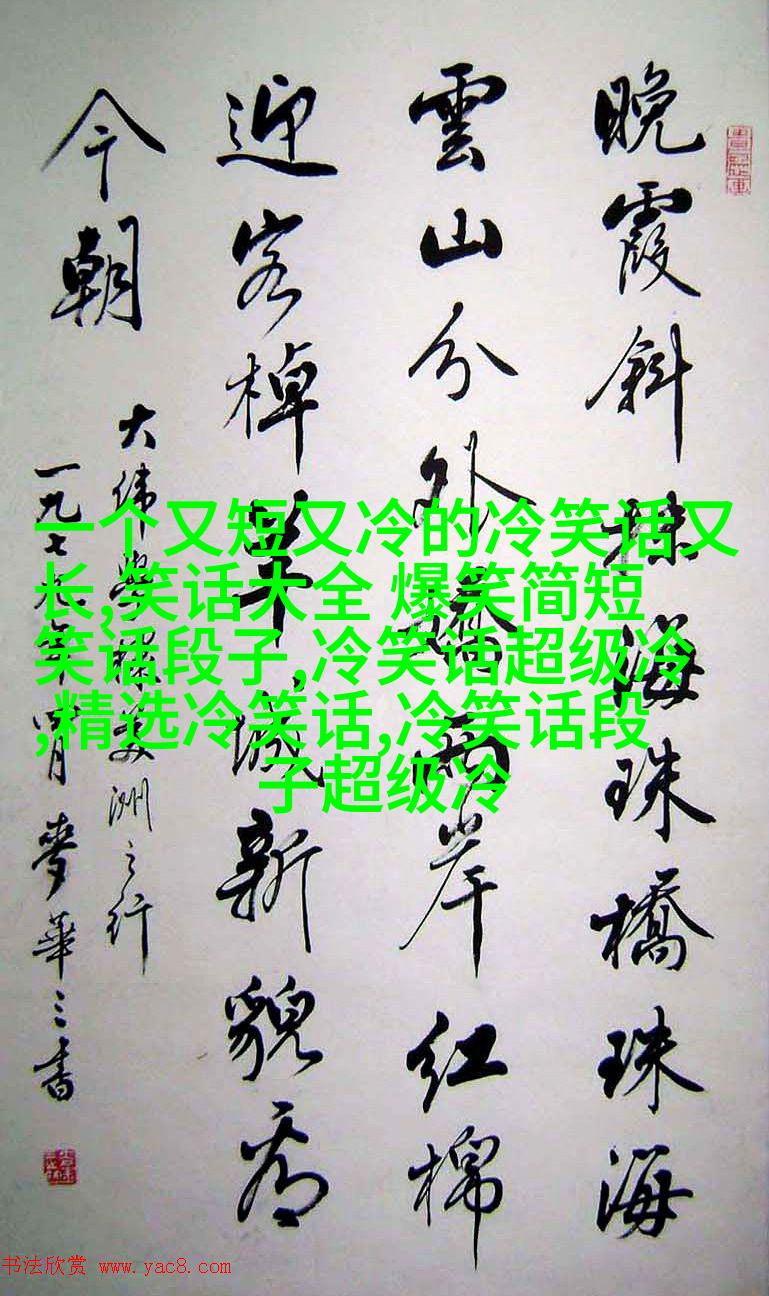 晚霞斜抹海珠橋珠海
雲山分外嬌兩岸紅棉
迎客棹羊城新貌看
今朝
大偉學棣美洲之行
一九七九年四月麥華三書
一个又短又冷的冷笑话又
长,笑话大全 爆笑简短
笑话段子,冷笑话超级冷
,精选冷笑话,冷笑话段
子超级冷
书法欣赏 www.yac8.com